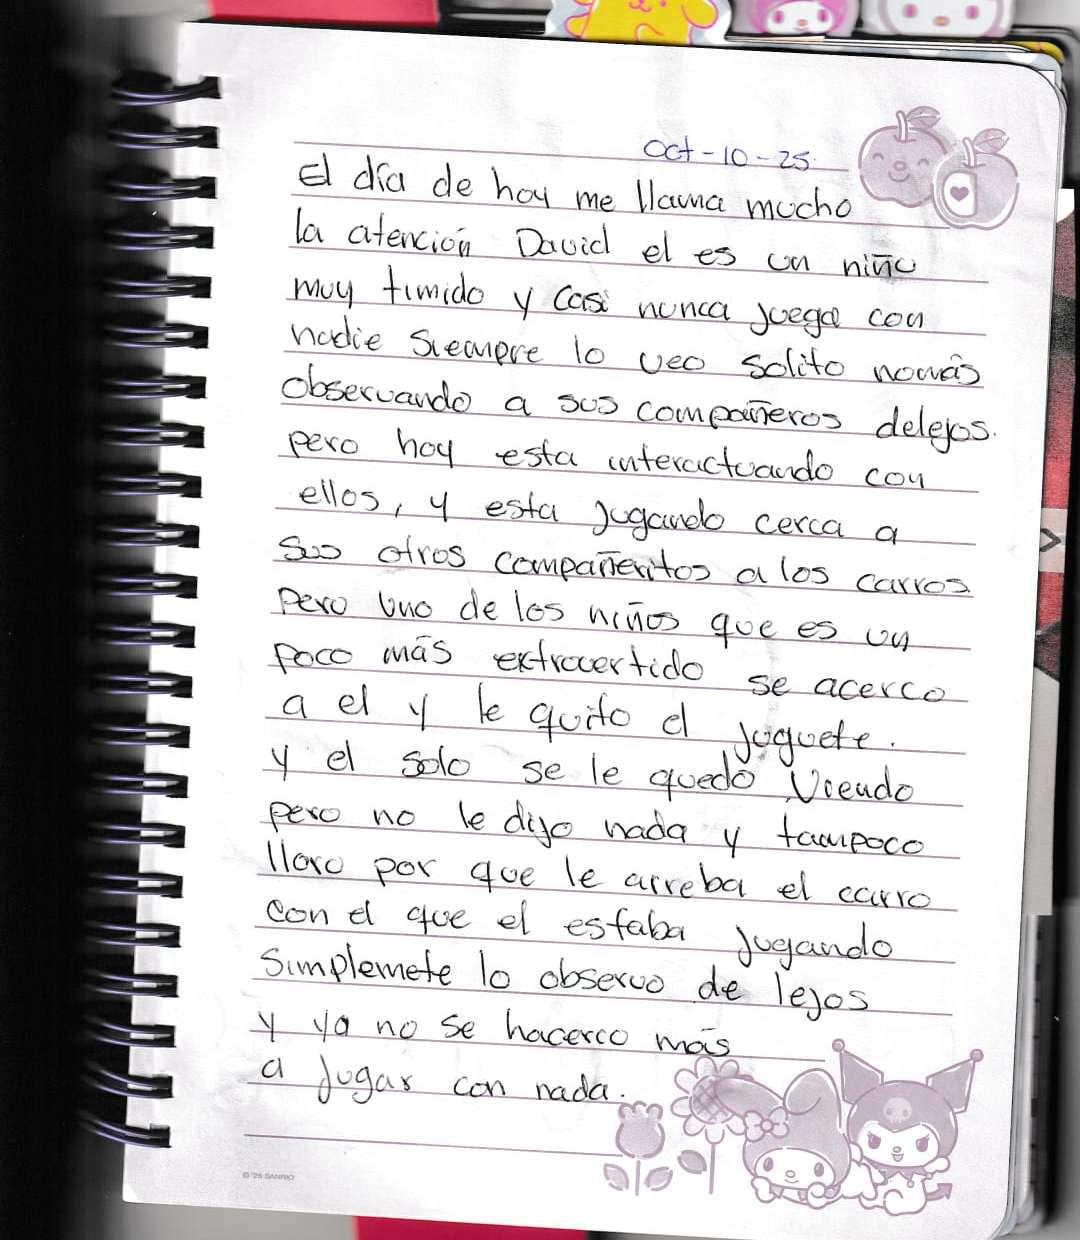 Oct-10-25.
El día de hoy me llama mucho
la atención David el es un niño
muy timido y casi nunca juega con
nadie siempre lo veo solito nomás
observando a sus compañeros delejos.
pero hoy esta interactuando con
ellos, y esta jugando cerca a
sus otros compañeritos a los carros
pero uno de los niños que es un
poco más extrovertido se acerco
a el y le quito el juguete.
y el solo se le quedó viendo
pero no le dijo nada y tampoco
lloro por que le arreba el carro
con el que el estaba jugando
simplemete lo observo de lejos
y ya no se hacerco más
a jugar con nada.
© '25 SANRIO